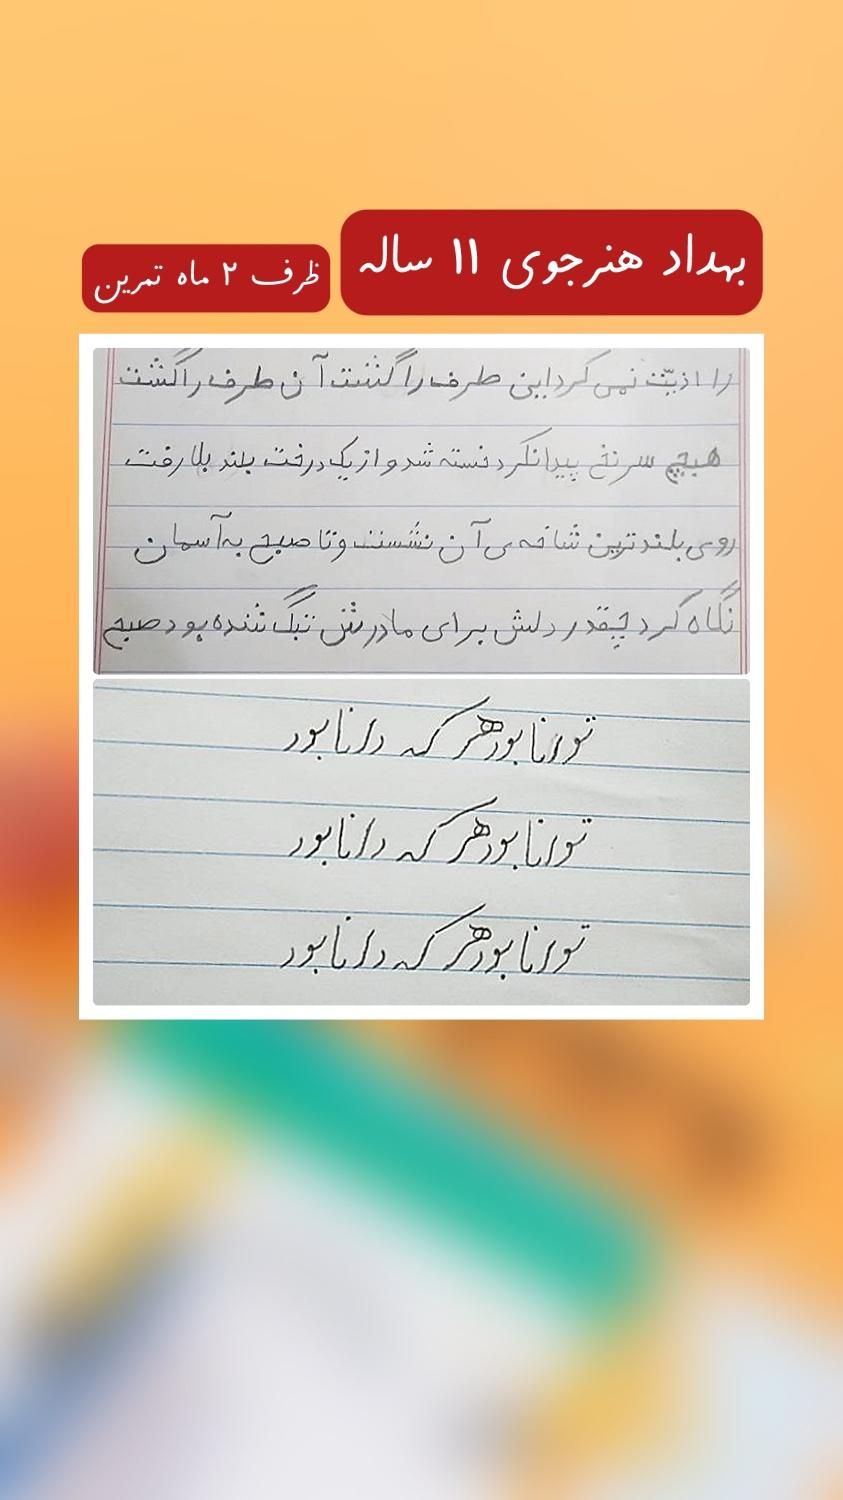 بهداد هنرجوی ۱۱ ساله
ظرف ۲ ماه تمرین
را اذیّت نمی کرد این طرف را گشت آن طرف را گشت
هیچ سرنخ پیدا نکرد خسته شد و از یک درخت بلند بلا رفت
روی بلندترین شاخه ی آن نشست و تا صبح به آسمان
نگاه کرد چقدر دلش برای مادرش تنگ شده بود صبح
توانا بود هر که دانا بود
توانا بود هر که دانا بود
توانا بود هر که دانا بود